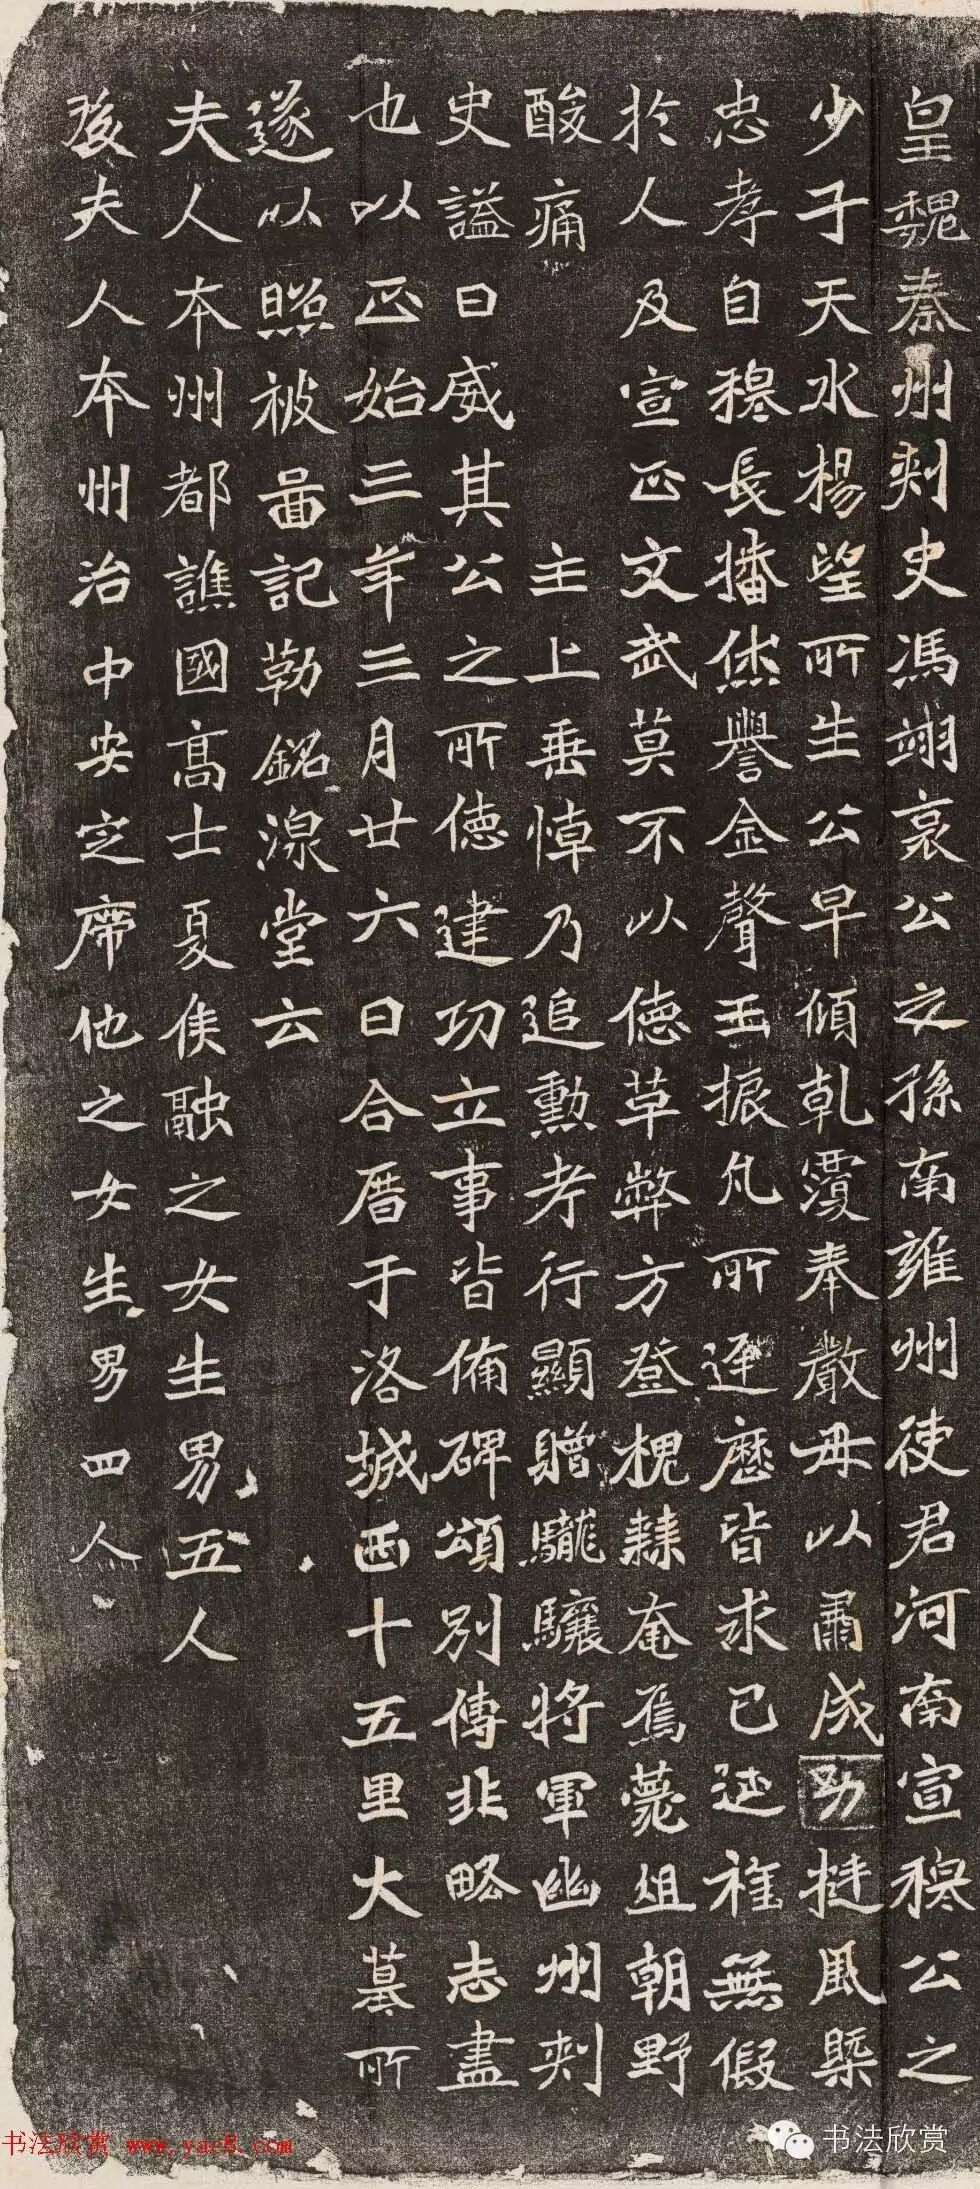 皇魏秦州刾史馮翊哀公之孫南雍州使君河南宣穆公之
少子天水楊望所生公早傾乾覆奉嚴母以肅成㓜挺風槩
忠孝自穆長播休譽金聲玉振凡所逕歷皆求已延祚無假
於人及宣正文武莫不以德草弊方登槐棘奄焉薨俎朝野
酸痛 主上垂悼乃追勳考行顯贈驡驤將軍幽州刾
史謚曰威其公之所德建功立事皆備碑頌別傳非略志盡
也以正始三年二月廿六日合厝于洛城西十五里大墓所
遂以照被圖記勒銘湶堂云
夫人本州都譙國高士夏侯融之女生男五人
後夫人本州治中安定席他之女生男四人
书法欣赏 www.yac8.com
书法欣赏